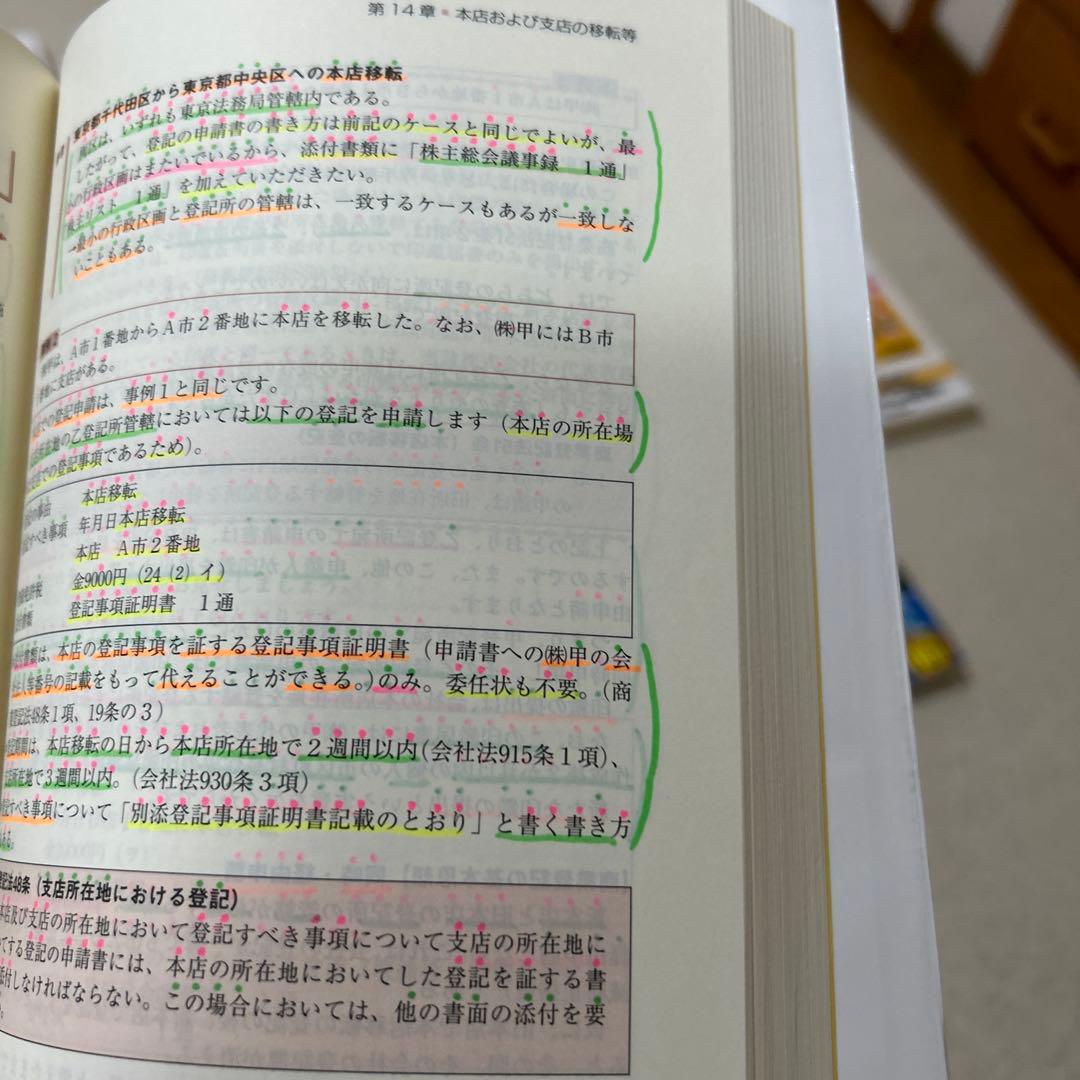 第14章 ● 本店および支店の移転等
東京都千代田区から東京都中央区への本店移転
両区は、いずれも東京法務局管轄内である。
したがって、登記の申請書の書き方は前記のケースと同じでよいが、最
小の行政区画はまたいでいるから、添付書類に「株主総会議事録　1通」
株主リスト　1通」を加えていただきたい。
最小の行政区画と登記所の管轄は、一致するケースもあるが一致しな
いこともある。
甲は、A市1番地からA市2番地に本店を移転した。なお、㈱甲にはB市
番地に支店がある。
での登記申請は、事例1と同じです。
所在地の乙登記所管轄においては以下の登記を申請します（本店の所在場
での登記事項であるため）。
の事由　本店移転
すべき事項　年月日本店移転
本店　A市2番地
金9000円（24（2）イ）
書類　登記事項証明書　1通
書類は、本店の登記事項を証する登記事項証明書（申請書への㈱甲の会
法人等番号の記載をもって代えることができる。）のみ。委任状も不要。（商
登記法48条1項、19条の3）
期間は、本店移転の日から本店所在地で2週間以内（会社法915条1項）、
所在地で3週間以内。（会社法930条3項）
すべき事項について「別添登記事項証明書記載のとおり」と書く書き方
ある。
登記法48条（支店所在地における登記）
本店及び支店の所在地において登記すべき事項について支店の所在地に
てする登記の申請書には、本店の所在地においてした登記を証する書
添付しなければならない。この場合においては、他の書面の添付を要